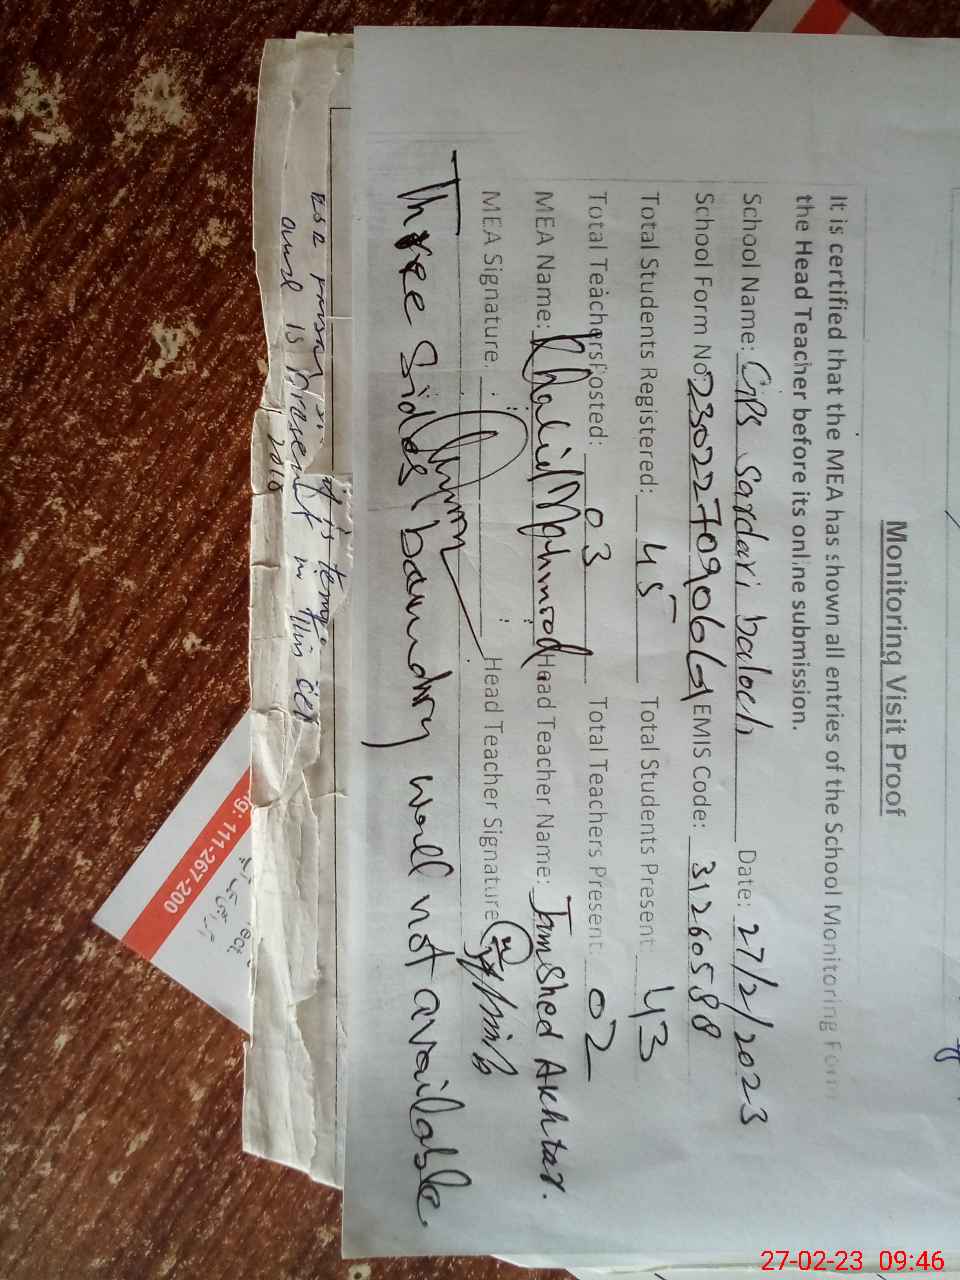 Monitoring Visit Proof
It is certified that the MEA has shown all entries of the School Monitoring Form
the Head Teacher before its online submission.
School Name: GPS Sardari baloch Date: 27/2/2023
School Form No: 23022709066 EMIS Code: 31260588
Total Students Registered: 45 Total Students Present: 43
Total Teachers Posted: 03 Total Teachers Present: 02
MEA Name: Khalid Mahmood Head Teacher Name: Jamshed Akhtar.
MEA Signature: Head Teacher Signature
Three Sides boundry wall not available
it is
and is present in this
2010
111-267-200
27-02-23 09:46